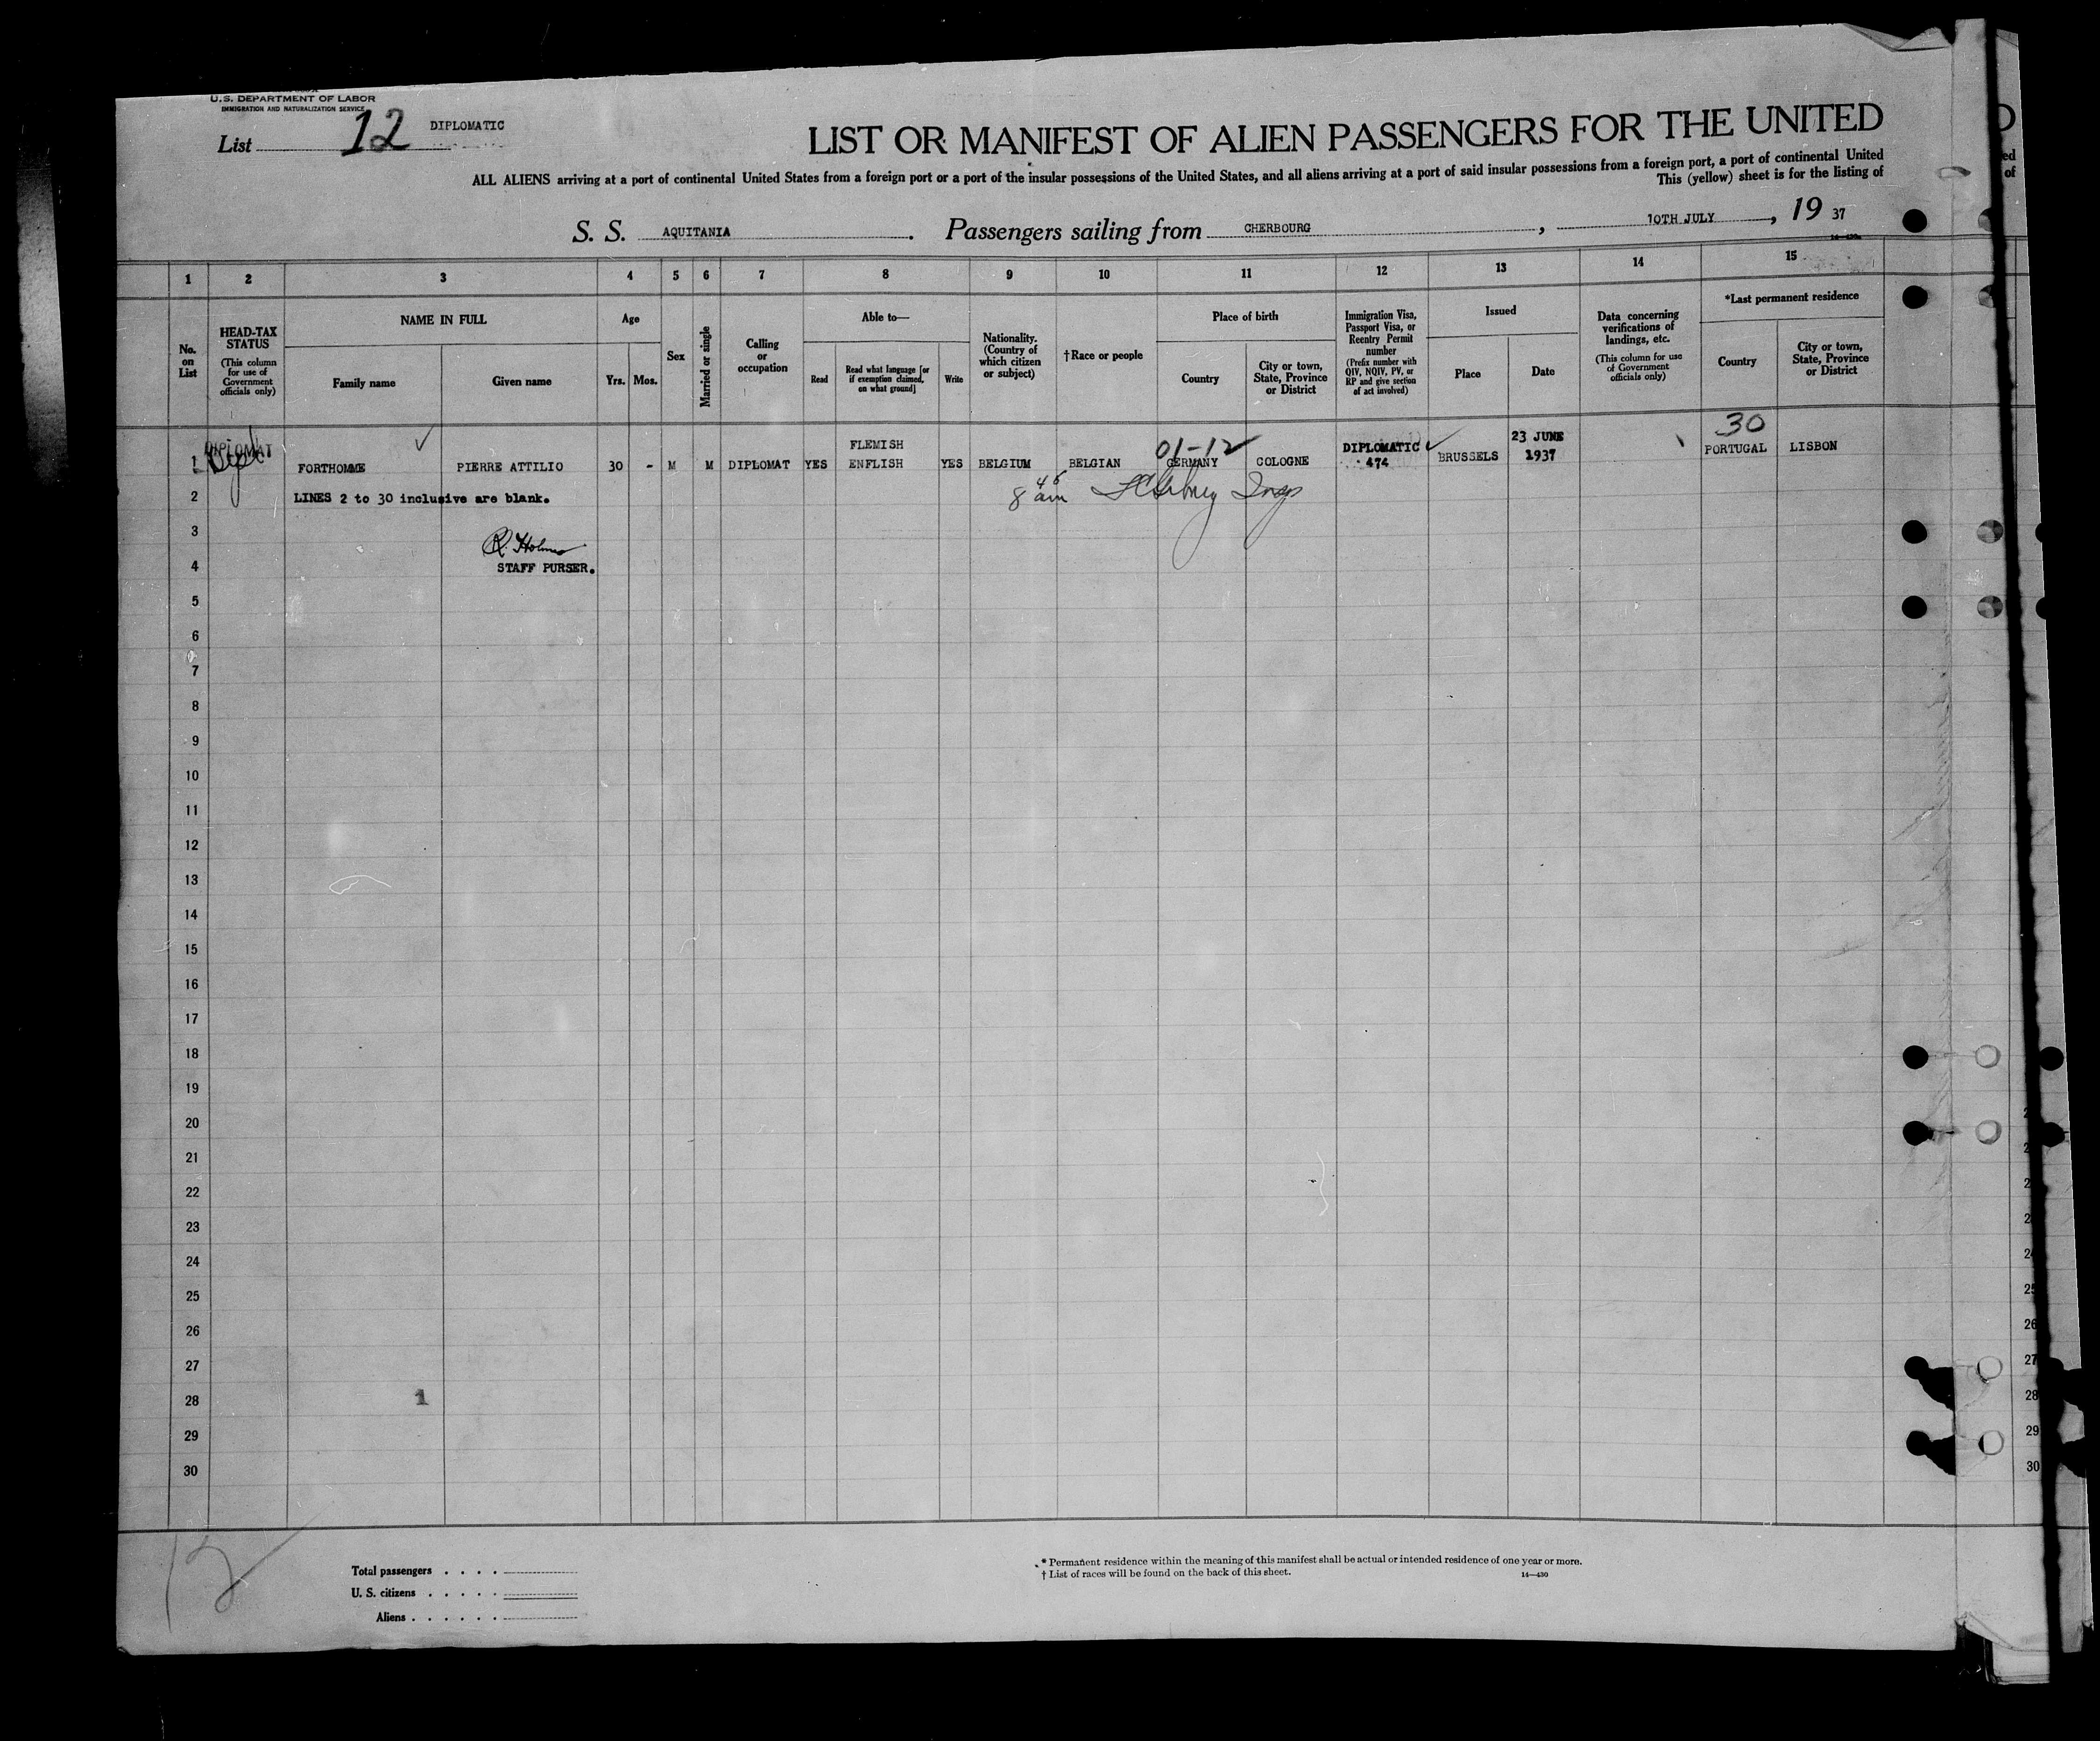 U.S. DEPARTMENT OF LABOR
IMMIGRATION AND NATURALIZATION SERVICE
List 12 DIPLOMATIC
LIST OR MANIFEST OF ALIEN PASSENGERS FOR THE UNITED
ALL ALIENS arriving at a port of continental United States from a foreign port or a port of the insular possessions of the United States, and all aliens arriving at a port of said insular possessions from a foreign port, a port of continental United
This (yellow) sheet is for the listing of
S. S. AQUITANIA. Passengers sailing from CHERBOURG, 10TH JULY, 19 37
1 2 3 4 5 6 7 8 9 10 11 12 13 14 15
No. on List
HEAD-TAX STATUS (This column for use of Government officials only)
NAME IN FULL
Family name
Given name
Age
Yrs. Mos.
Sex
Married or single
Calling or occupation
Able to—
Read
Read what language [or if exemption claimed, on what ground]
Write
Nationality. (Country of which citizen or subject)
†Race or people
Place of birth
Country
City or town, State, Province or District
Immigration Visa, Passport Visa, or Reentry Permit number (Prefix number with QIV, NQIV, PV, or RP and give section of act involved)
Issued
Place
Date
Data concerning verifications of landings, etc. (This column for use of Government officials only)
*Last permanent residence
Country
City or town, State, Province or District
30
01-12
1 DIPLOMAT FORTHOMME PIERRE ATTILIO 30 - M M DIPLOMAT YES FLEMISH ENFLISH YES BELGIUM BELGIAN GERMANY COLOGNE DIPLOMATIC 474 BRUSSELS 23 JUNE 1937 PORTUGAL LISBON
2 LINES 2 to 30 inclusive are blank. 8 45 am
3 R. Holmes
4 STAFF PURSER.
5
6
7
8
9
10
11
12
13
14
15
16
17
18
19
20
21
22
23
24
25
26
27
28 1
29
30
12
Total passengers . . . .
U. S. citizens . . . . .
Aliens . . . . . .
* Permanent residence within the meaning of this manifest shall be actual or intended residence of one year or more.
† List of races will be found on the back of this sheet.
14—430